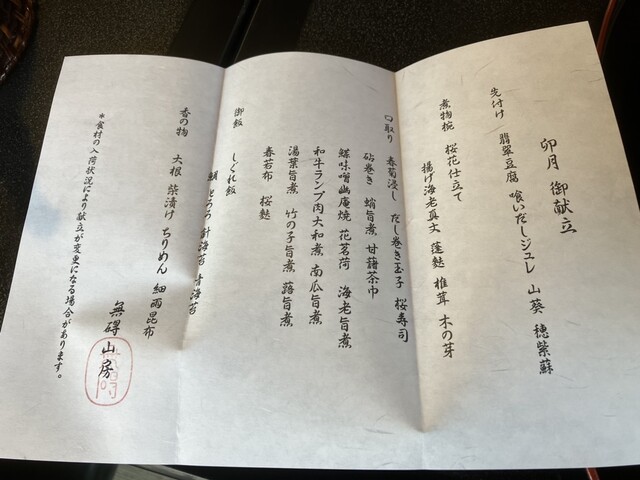 卯月 御献立
先付け 翡翠豆腐 喰いだしジュレ 山葵 穂紫蘇
煮物椀 桜花仕立て
揚げ海老真丈 蓬麩 椎茸 木の芽
口取り 春菊浸し だし巻き玉子 桜寿司
砧巻き 蛸旨煮 甘藷茶巾
鰆味噌幽庵焼 花茗荷 海老旨煮
和牛ランプ肉大和煮 南瓜旨煮
湯葉旨煮 竹の子旨煮 蕗旨煮
春若布 桜麩
御飯 しぐれ飯
鯛 とろろ 針海苔 青海苔
香の物 大根 柴漬け ちりめん 細雨昆布
無碍山房
*食材の入荷状況により献立が変更になる場合があります。